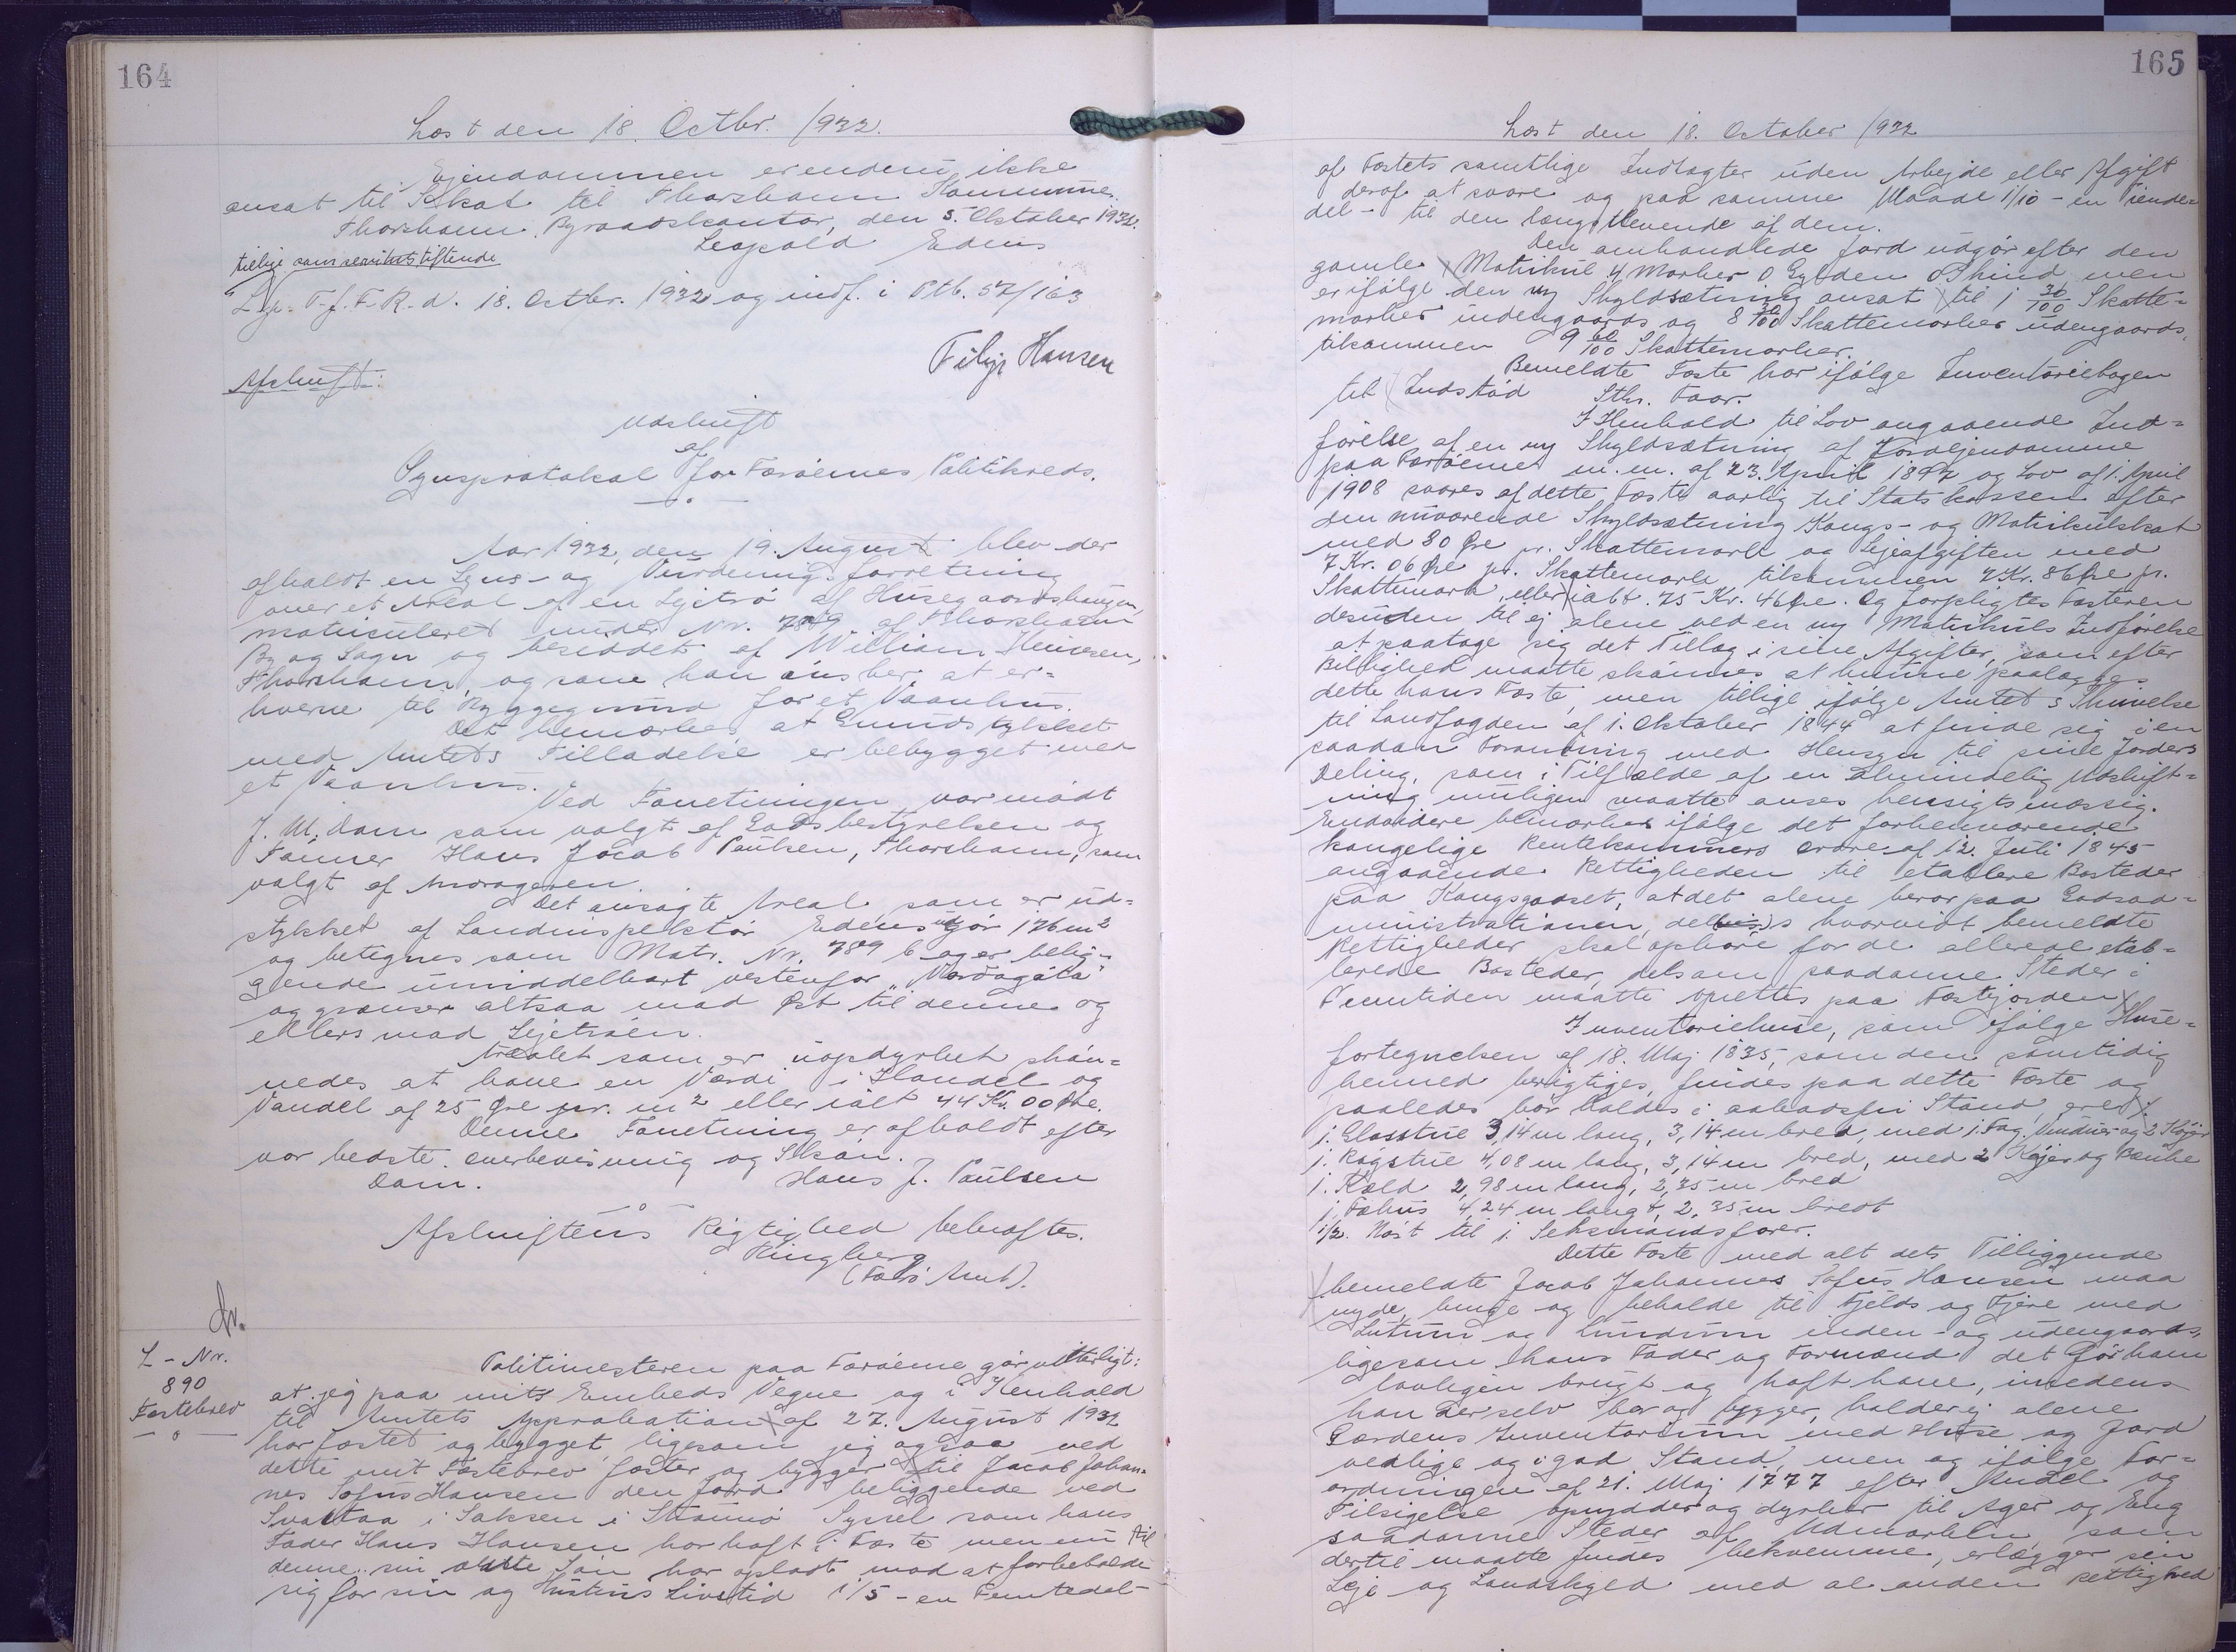 164
Læst den 18. Octbr. 1932.
Ejendommen er endnu ikke
ansat til Skat til Thorshavn Kommune.
Thorshavn Byraadskontor, den 5. Oktober 1932.
Leopold Edens
tillige som servitutstiftende
Lyst T. f. F. R. d. 18. Octbr. 1932 og indf. i Ptb. 57/163
Filip Hansen
Afskrift:
Udskrift
af
Synsprotokol for Færöernes Politikreds.
Aar 1932, den 19. August blev der
afholdt en Syns- og Vurderingsforretning
over et Areal af en Lejetrö af Husegaardshaugen,
matriculeret under Nr. 789 af Thorshavn
By og Sogn og besiddet af William Heinesen,
Thorshavn, og som han önsker at er=
hverve til Byggegrund for et Vaanhus.
Det bemærkes, at Grundstykket
med Amtets Tilladelse er bebygget med
et Vaanhus.
Ved Forretningen var mödt
J. M. Dam som valgt af Godsbestyrelsen og
Tömrer Hans Jacob Paulsen, Thorshavn, som
valgt af Andrageren.
Det ansögte Areal som er ud=
stykket af Landinspektör Edens udgör 176 m²
og betegnes som Matr. Nr. 789 b og er belig=
gende umiddelbart vestenfor „Vardagöta"
og grænser altsaa mod Øst til denne og
ellers mod Lejetröen.
Arealet som er uopdyrket skön=
nedes at have en Værdi i Handel og
Vandel af 25 Øre pr. m² eller ialt 44 Kr. 00 Øre.
Denne Forretning er afholdt efter
vor bedste Overbevisning og Skön.
Dam. Hans J. Paulsen
Afskriftens Rigtighed bekræftes.
Ringberg
(Færö Amt).
L - Nr.
890
Fæstebrev
Politimesteren paa Færöerne gör vitterligt:
at jeg paa mits Embeds Vegne og i Henhold
til Amtets Approbation af 27. August 1932
har fæstet og bygget, ligesom jeg ogsaa ved
dette mit Fæstebrev fæster og bygger til Jacob Johan=
nes Sofus Hansen den Jord beliggende ved
Svartaa i Saksen i Strömö Syssel som hans
Fader Hans Hansen har haft i Fæste men nu til
denne sin ældste Sön har opladt mod at forbeholde
sig for sin og Hustrus Livstid 1/5 - en Femtedel -
165
Læst den 18. October 1932
af Fæstets samtlige Indtægter uden Arbejde eller Afgift
deraf at svare og paa samme Maade 1/10 - en Tiende=
del - til den længstlevende af dem.
Den omhandlede Jord udgör efter den
gamle Matrikul 4 Marker 0 Gylden 0 Skind men
er ifölge den ny Skyldsætning ansat til 1 30/100 Skatte=
marker indengaards og 8 30/100 Skattemarker udengaards,
tilsammen 9 60/100 Skattemarker.
Bemeldte Fæste har ifölge Inventariebogen
til Indstöd Stk. Faar.
I Henhold til Lov angaaende Ind=
förelse af en ny Skyldsætning af Jordejendomme
paa Færöerne m. m. af 23. April 1897 og Lov af 1. April
1908 svares af dette Fæste aarlig til Statskassen efter
den nuværende Skyldsætning Kongs- og Matrikulskat
med 80 Øre pr. Skattemark og Lejeafgiften med
7 Kr. 06 Øre pr. Skattemark, tilsammen 7 Kr. 86 Øre pr.
Skattemark, eller ialt 75 Kr. 46 Øre. Og forpligtes Fæsteren
desuden til ej alene ved en ny Matrikuls Indförelse
at paatage sig det Tillæg i sine Afgifter, som efter
Billighed maatte skönnes at kunne paalægges
dette hans Fæste, men tillige ifölge Amtets Skrivelse
til Landfogden af 1. Oktober 1844 at finde sig i en
saadan Forandring med Hensyn til sine Jorders
Deling, som i Tilfælde af en almindelig Udskift=
ning muligen maatte anses hensigtsmæssig.
Endvidere bemærkes ifölge det forhenværende
kongelige Rentekammers Ordre af 12. Juli 1845
angaaende Rettigheden til etablere Bosteder
paa Kongsgodset, at det alene beror paa Godsad=
ministrationen, dels hvorvidt bemeldte
Rettigheder skal ophöre for de allerede etab=
lerede Bosteder, dels om saadanne Steder i
Fremtiden maatte oprettes paa Fæstejorden.
Inventariehuse, som ifölge Huse=
fortegnelsen af 18. Maj 1835, som den samtidig
hermed berigtiges, findes paa dette Fæste og
saaledes bör holdes i aabodsfri Stand, ere:
1. Glasstue 3,14 m lang, 3,14 m bred, med 1. Fag. Vinduer og 2 Köjer
1. Rögstue 4,08 m lang, 3,14 m bred, med 2 Köjer og Bænke
1. Kæld 2,98 m lang, 2,35 m bred
1. Fæhus 4,24 m langt, 2,35 m bredt
1/2. Nöst til 1. Seksmandsfarer.
Dette Fæste med alt dets Tilliggende
bemeldte Jacob Johannes Sofus Hansen maa
nyde, bruge og beholde til Fjelds og Fjære med
Lutum og Lundum inden- og udengaards,
ligesom hans Fader og Formænd det för ham
lovligen brugt og haft have, imedens
han der selv bor og bygger, holder ej alene
Gaardens Inventarium med Huse og Jord
vedlige og i god Stand, men og ifölge For=
ordningen af 21. Maj 1777 efter Andel og
Tilsigelse oprydder og dyrker til Ager og Eng
saadanne Steder af Udmarken, som
dertil maatte findes bekvemme, erlægger sin
Leje og Landskyld med al anden Rettighed